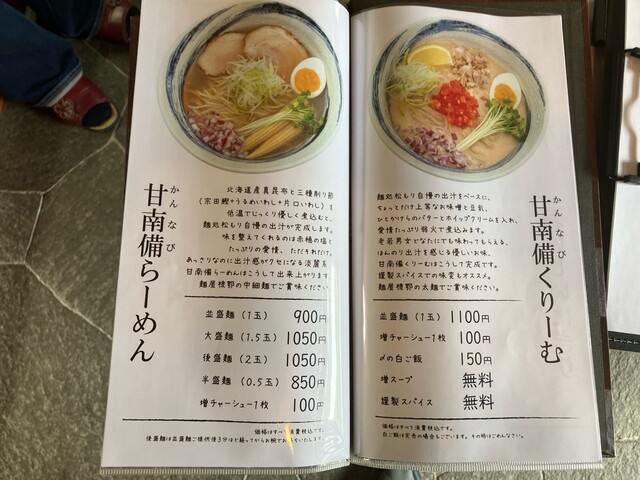 甘南備らーめん
かんなび
北海道産真昆布と三種削り節
(宗田鰹+うるめいわし+片口いわし)を
低温でじっくり優しく煮込むと、
麺処松もり自慢の出汁が完成します。
味を整えてくれるのは赤穂の塩と
たっぷりの愛情、ただそれだけ。
あっさりなのに出汁感がクセになる淡麗系
甘南備らーめんはこうして出来上がります。
麺屋棣鄂の中細麺でご賞味ください。
並盛麺(1玉) 900円
大盛麺(1.5玉) 1050円
後盛麺(2玉) 1050円
半盛麺(0.5玉) 850円
増チャーシュー1枚 100円
価格はすべて消費税込です。
後盛麺は並盛麺ご提供後3分ほど経ってからお碗でお持ちいたします。
甘南備くりーむ
かんなび
麺処松もり自慢の出汁をベースに、
ちょっとだけ上等なお味噌と豆乳、
ひとかけらのバターとホイップクリームを入れ、
愛情たっぷり弱火で煮込みます。
老若男女どなたにでも味わってもらえる、
ほんのり出汁を感じる優しいお味、
甘南備くりーむはこうして完成です。
謹製スパイスでの味変もオススメ。
麺屋棣鄂の太麺でご賞味ください。
並盛麺(1玉) 1100円
増チャーシュー1枚 100円
〆の白ご飯 150円
増スープ 無料
謹製スパイス 無料
価格はすべて消費税込です。
白ご飯は完売の場合もございます。その時はごめんなさい。